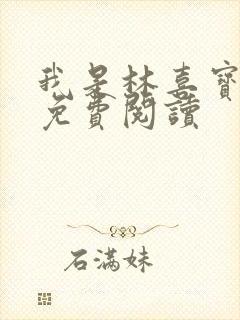 我是林喜寶
免費閱讀
石滿妹